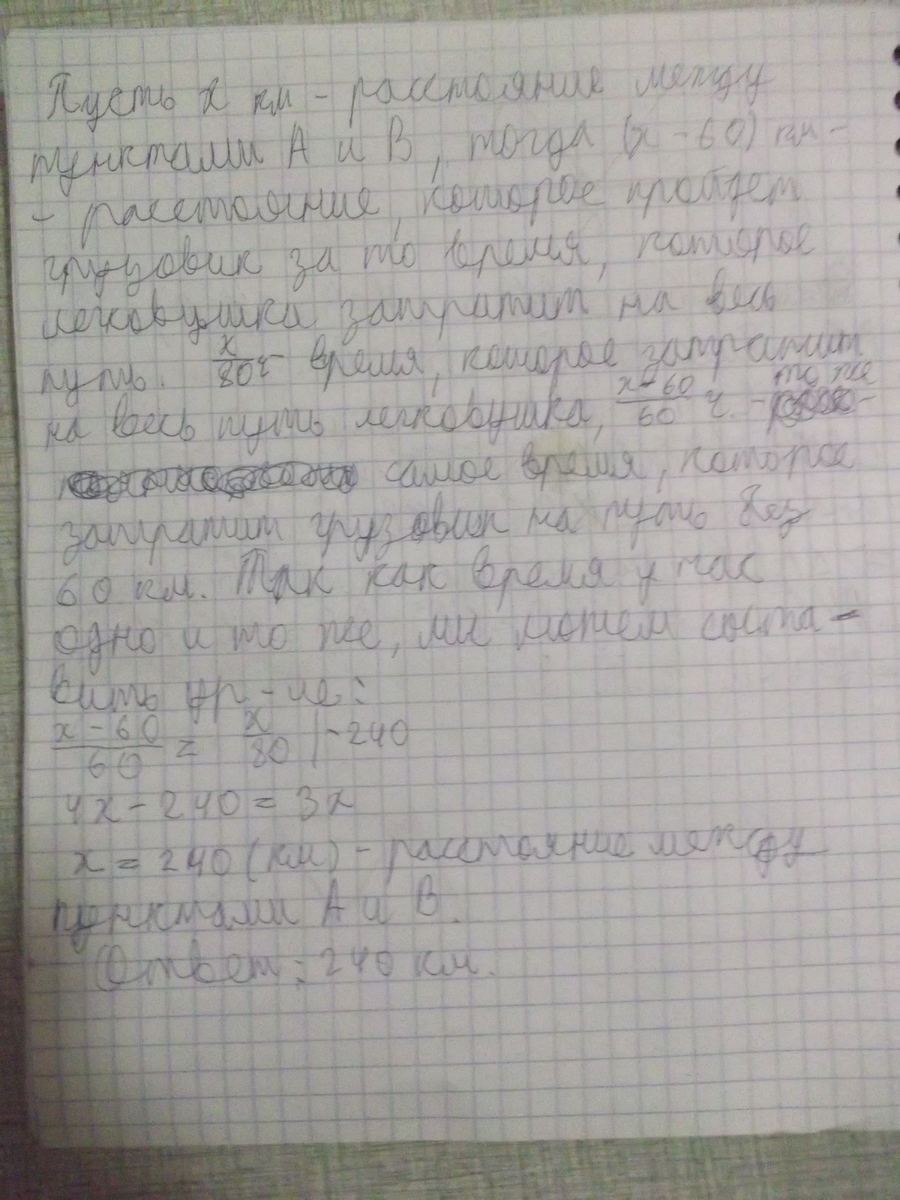 Пусть x км - расстояние между
пунктами А и В, тогда (x - 60) км -
- расстояние, которое пройдет
грузовик за то время, которое
легковушка затратит на весь
путь. x/80 ч - время, которое затратит
на весь путь легковушка, (x-60)/60 ч. - то же
самое время, которое
затратит грузовик на путь без
60 км. Так как время у нас
одно и то же, мы можем соста-
вить ур-ие:
(x-60)/60 = x/80 | ·240
4x - 240 = 3x
x = 240 (км) - расстояние между
пунктами А и В.
Ответ: 240 км.